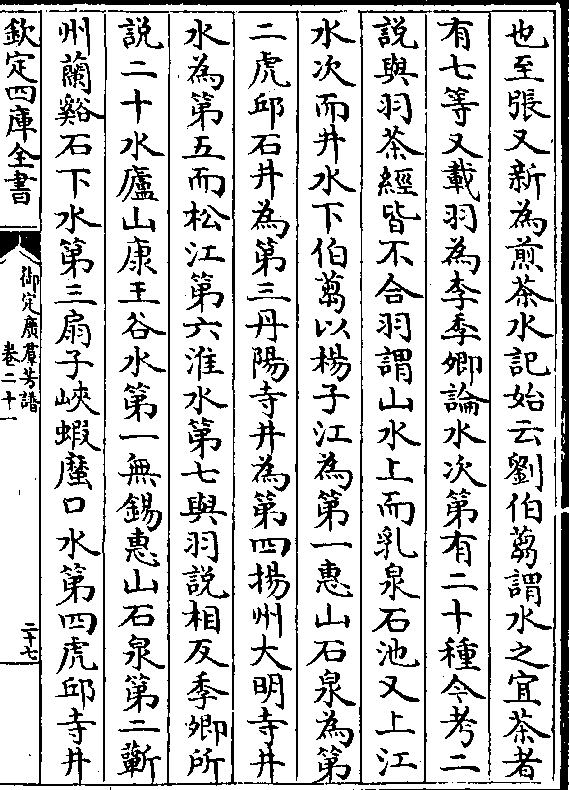 也至張又新為煎茶水記始云劉伯芻謂水之宜茶者
有七等又載羽為李季卿論水次第有二十種今考二
說與羽茶經皆不合羽謂山水上而乳泉石池又上江
水次而井水下伯芻以楊子江為第一惠山石泉為第
二虎邱石井為第三丹陽寺井為第四揚州大明寺井
水為第五而松江第六淮水第七與羽說相反季卿所
說二十水廬山康王谷水第一無錫惠山石泉第二蘄
州蘭谿石下水第三扇子峽蝦蟇口水第四虎邱寺井
欽定四庫全書
御定廣羣芳譜
卷二十一
二十七